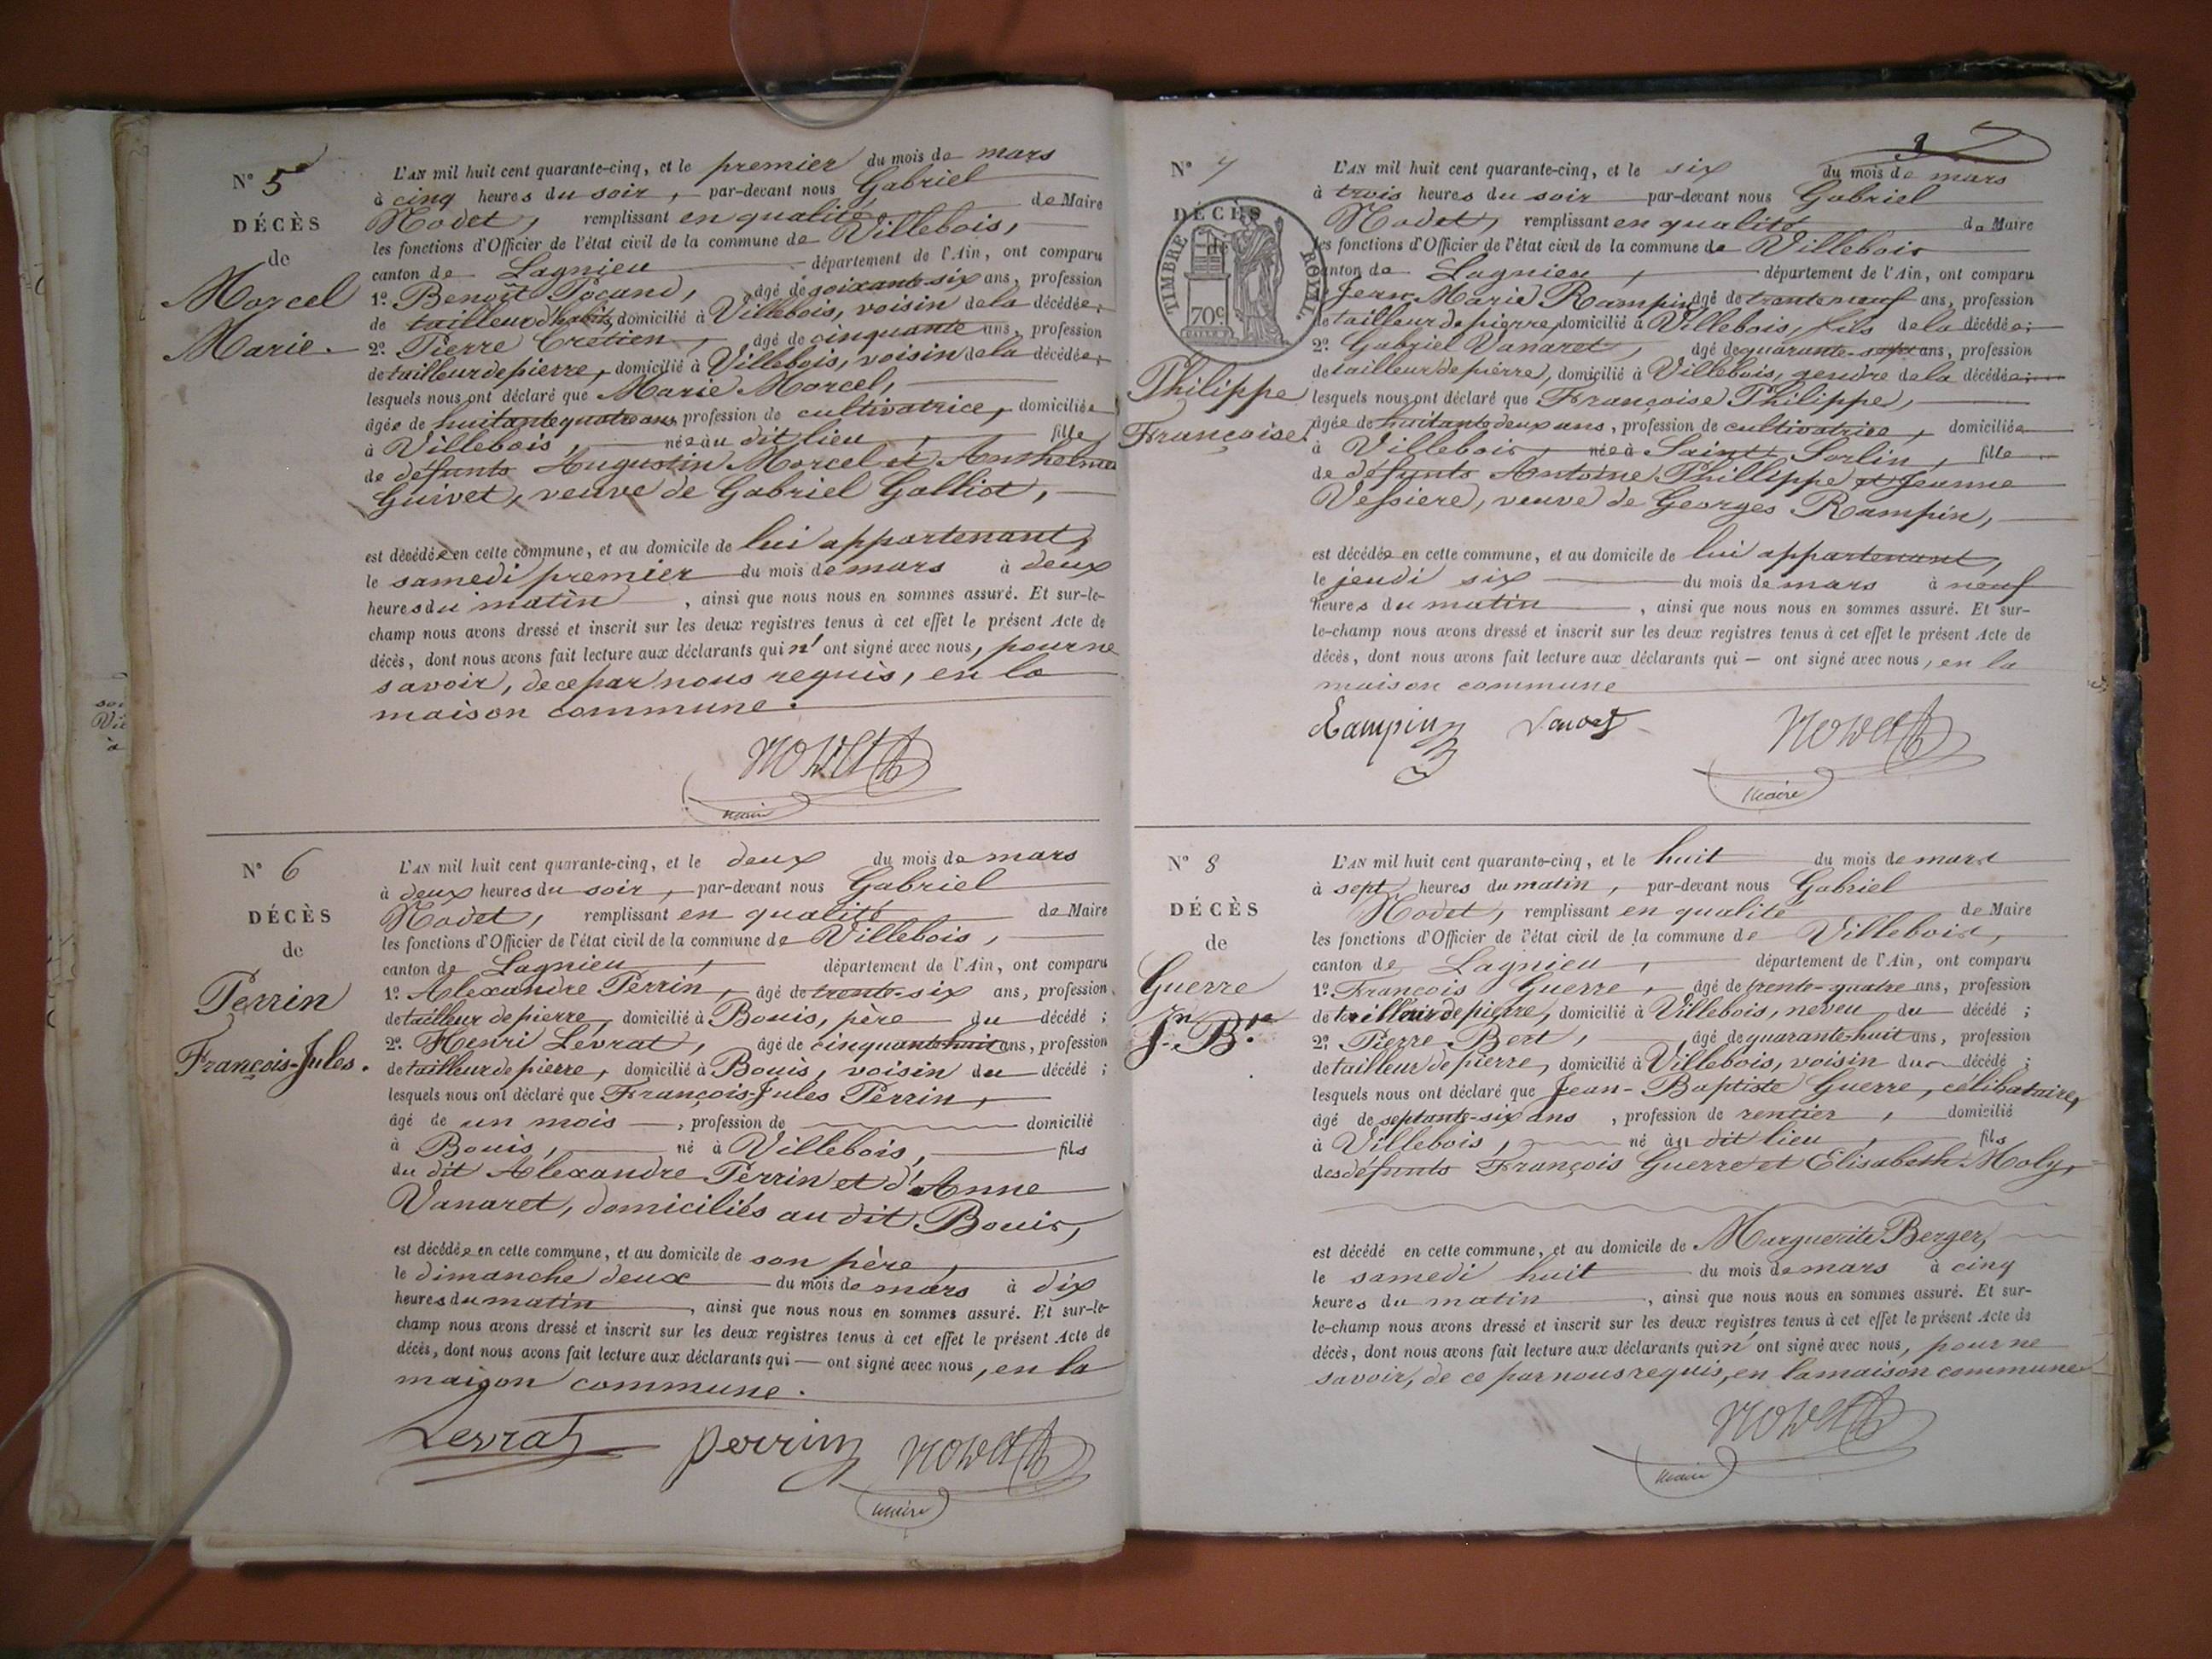 N° 5
DÉCÈS
de
Morcel
Marie.
L'AN mil huit cent quarante-cinq, et le premier du mois de mars
à cinq heures du soir, par-devant nous Gabriel
Nodet, remplissant en qualité de Maire
les fonctions d'Officier de l'état civil de la commune de Villebois,
canton de Lagnieu département de l'Ain, ont comparu
1° Benoît Pocand, âgé de soixante-six ans, profession
de tailleur d'habits, domicilié à Villebois, voisin de la décédée;
2° Pierre Crétien, âgé de cinquante ans, profession
de tailleur de pierre, domicilié à Villebois, voisin de la décédée;
lesquels nous ont déclaré que Marie Morcel,
âgée de huitante quatre ans, profession de cultivatrice, domiciliée
à Villebois, née au dit lieu, fille
de défunts Augustin Morcel et Anthelme
Guivet, veuve de Gabriel Galliot,
est décédée en cette commune, et au domicile de lui appartenant,
le samedi premier du mois de mars à deux
heures du matin, ainsi que nous nous en sommes assuré. Et sur-le-
champ nous avons dressé et inscrit sur les deux registres tenus à cet effet le présent Acte de
décès, dont nous avons fait lecture aux déclarants qui n'ont signé avec nous, pour ne
savoir, de ce par nous requis, en la
maison commune.
Nodet
maire
N° 6
DÉCÈS
de
Perrin
François-Jules.
L'AN mil huit cent quarante-cinq, et le deux du mois de mars
à deux heures du soir, par-devant nous Gabriel
Nodet, remplissant en qualité de Maire
les fonctions d'Officier de l'état civil de la commune de Villebois,
canton de Lagnieu, département de l'Ain, ont comparu
1° Alexandre Perrin, âgé de trente-six ans, profession
de tailleur de pierre, domicilié à Bouis, père du décédé;
2° Henri Levrat, âgé de cinquante huit ans, profession
de tailleur de pierre, domicilié à Bouis, voisin du décédé;
lesquels nous ont déclaré que François-Jules Perrin,
âgé de un mois, profession de domicilié
à Bouis, né à Villebois, fils
du dit Alexandre Perrin et d'Anne
Vanaret, domiciliés au dit Bouis,
est décédée en cette commune, et au domicile de son père,
le dimanche deux du mois de mars à dix
heures du matin, ainsi que nous nous en sommes assuré. Et sur-le-
champ nous avons dressé et inscrit sur les deux registres tenus à cet effet le présent Acte de
décès, dont nous avons fait lecture aux déclarants qui — ont signé avec nous, en la
maison commune.
Levrat perrin Nodet
maire
N° 7
DÉCÈS
de
TIMBRE ROYAL
70c
Philippe
Françoise.
L'AN mil huit cent quarante-cinq, et le six du mois de mars
à trois heures du soir par-devant nous Gabriel
Nodet, remplissant en qualité de Maire
les fonctions d'Officier de l'état civil de la commune de Villebois
canton de Lagnieu, département de l'Ain, ont comparu
Jean-Marie Rampin, âgé de trente neuf ans, profession
de tailleur de pierre, domicilié à Villebois, fils de la décédée;
2° Gabriel Vanaret, âgé de quarante-sept ans, profession
de tailleur de pierre, domicilié à Villebois, gendre de la décédée;
lesquels nous ont déclaré que Françoise Philippe,
âgée de huitante deux ans, profession de cultivatrice, domiciliée
à Villebois, née à Saint Sorlin, fille
de défunts Antoine Phillippe et Jeanne
Vessiere, veuve de Georges Rampin,
est décédée en cette commune, et au domicile de lui appartenant,
le jeudi six du mois de mars à neuf
heures du matin, ainsi que nous nous en sommes assuré. Et sur-
le-champ nous avons dressé et inscrit sur les deux registres tenus à cet effet le présent Acte de
décès, dont nous avons fait lecture aux déclarants qui — ont signé avec nous, en la
maison commune
Rampin Nodet
Maire
N° 8
DÉCÈS
de
Guerre
Jn. Bte.
L'AN mil huit cent quarante-cinq, et le huit du mois de mars
à sept heures du matin, par-devant nous Gabriel
Nodet, remplissant en qualité de Maire
les fonctions d'Officier de l'état civil de la commune de Villebois,
canton de Lagnieu, département de l'Ain, ont comparu
1° François Guerre, âgé de trente-quatre ans, profession
de tailleur de pierre, domicilié à Villebois, neveu du décédé;
2° Pierre Bert, âgé de quarante-huit ans, profession
de tailleur de pierre, domicilié à Villebois, voisin du décédé;
lesquels nous ont déclaré que Jean-Baptiste Guerre, célibataire,
âgé de septante-six ans, profession de rentier, domicilié
à Villebois, né au dit lieu, fils
des défunts François Guerre et Elisabeth Moly,
est décédé en cette commune, et au domicile de Marguerite Berger,
le samedi huit du mois de mars à cinq
heures du matin, ainsi que nous nous en sommes assuré. Et sur-
le-champ nous avons dressé et inscrit sur les deux registres tenus à cet effet le présent Acte de
décès, dont nous avons fait lecture aux déclarants qui n'ont signé avec nous, pour ne
savoir, de ce par nous requis, en la maison commune
Nodet
maire